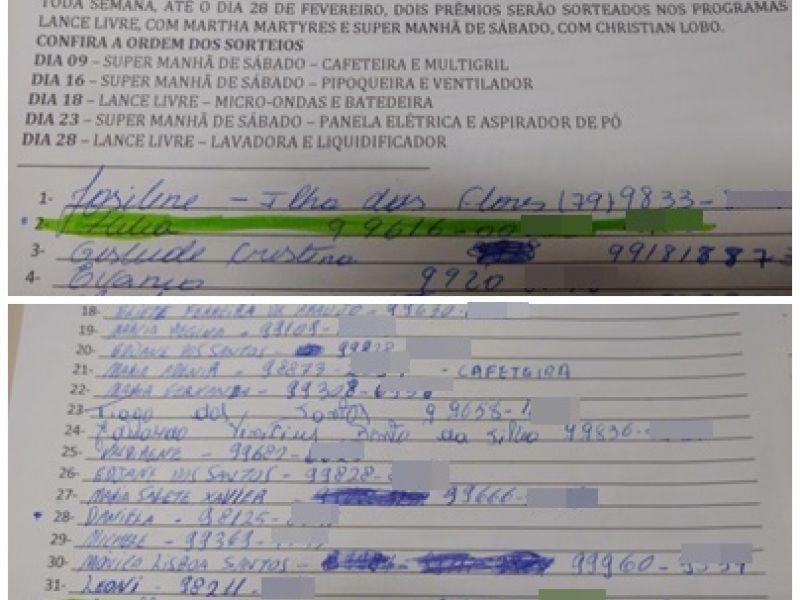 TODA SEMANA, ATÉ O DIA 28 DE FEVEREIRO, DOIS PRÊMIOS SERÃO SORTEADOS NOS PROGRAMAS
LANCE LIVRE, COM MARTHA MARTYRES E SUPER MANHÃ DE SÁBADO, COM CHRISTIAN LOBO.
CONFIRA A ORDEM DOS SORTEIOS
DIA 09 – SUPER MANHÃ DE SÁBADO – CAFETEIRA E MULTIGRIL
DIA 16 – SUPER MANHÃ DE SÁBADO – PIPOQUEIRA E VENTILADOR
DIA 18 – LANCE LIVRE – MICRO-ONDAS E BATEDEIRA
DIA 23 – SUPER MANHÃ DE SÁBADO – PANELA ELÉTRICA E ASPIRADOR DE PÓ
DIA 28 – LANCE LIVRE – LAVADORA E LIQUIDIFICADOR
1- Josilene – Ilha das Flores (79) 9833-
2- 99616-
3- Cristina 991818873
4- 9920
18- FERREIRA DE ARAUJO -
19- MARIA REGINA - 99109-
20- EDJANE DOS SANTOS - 99828
21- MARIA - 98873- - CAFETEIRA
22- MARIA FERNANDA - 99308-
23- Tiago dos Santos 99658-
24- Vinicius da silva 99836-
25- - 99687-
26- EDJANE DOS SANTOS - 99828-
27- MARIA SALETE XAVIER - 99666-
28- DANIELA - 98125-
29- MICHELE - 99369-
30- MÔNICA LISBOA SANTOS - 99960-
31- LEONI - 98211-